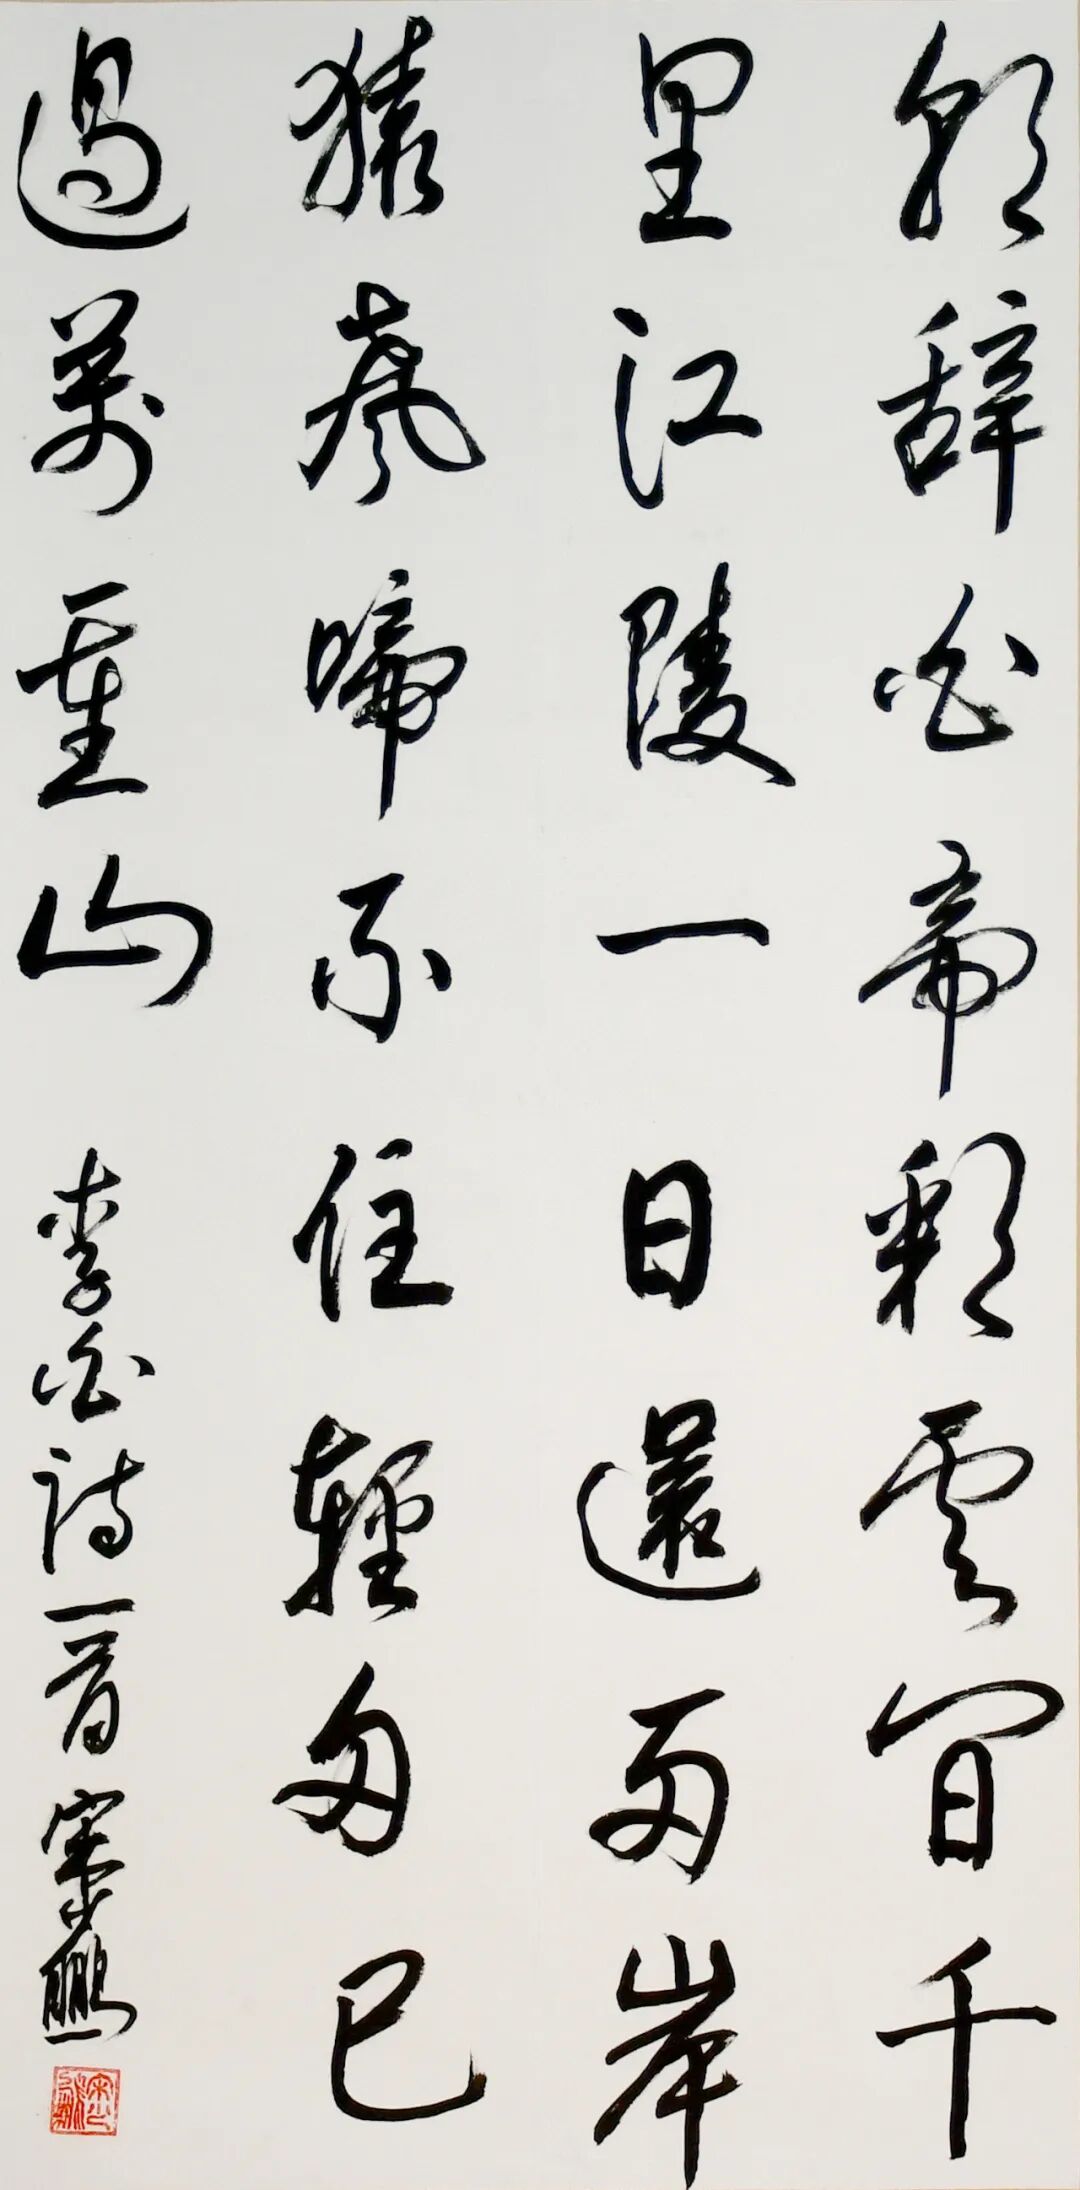 朝辞白帝彩雲間千
里江陵一日還兩岸
猿聲啼不住輕舟已
過萬重山 李白詩一首